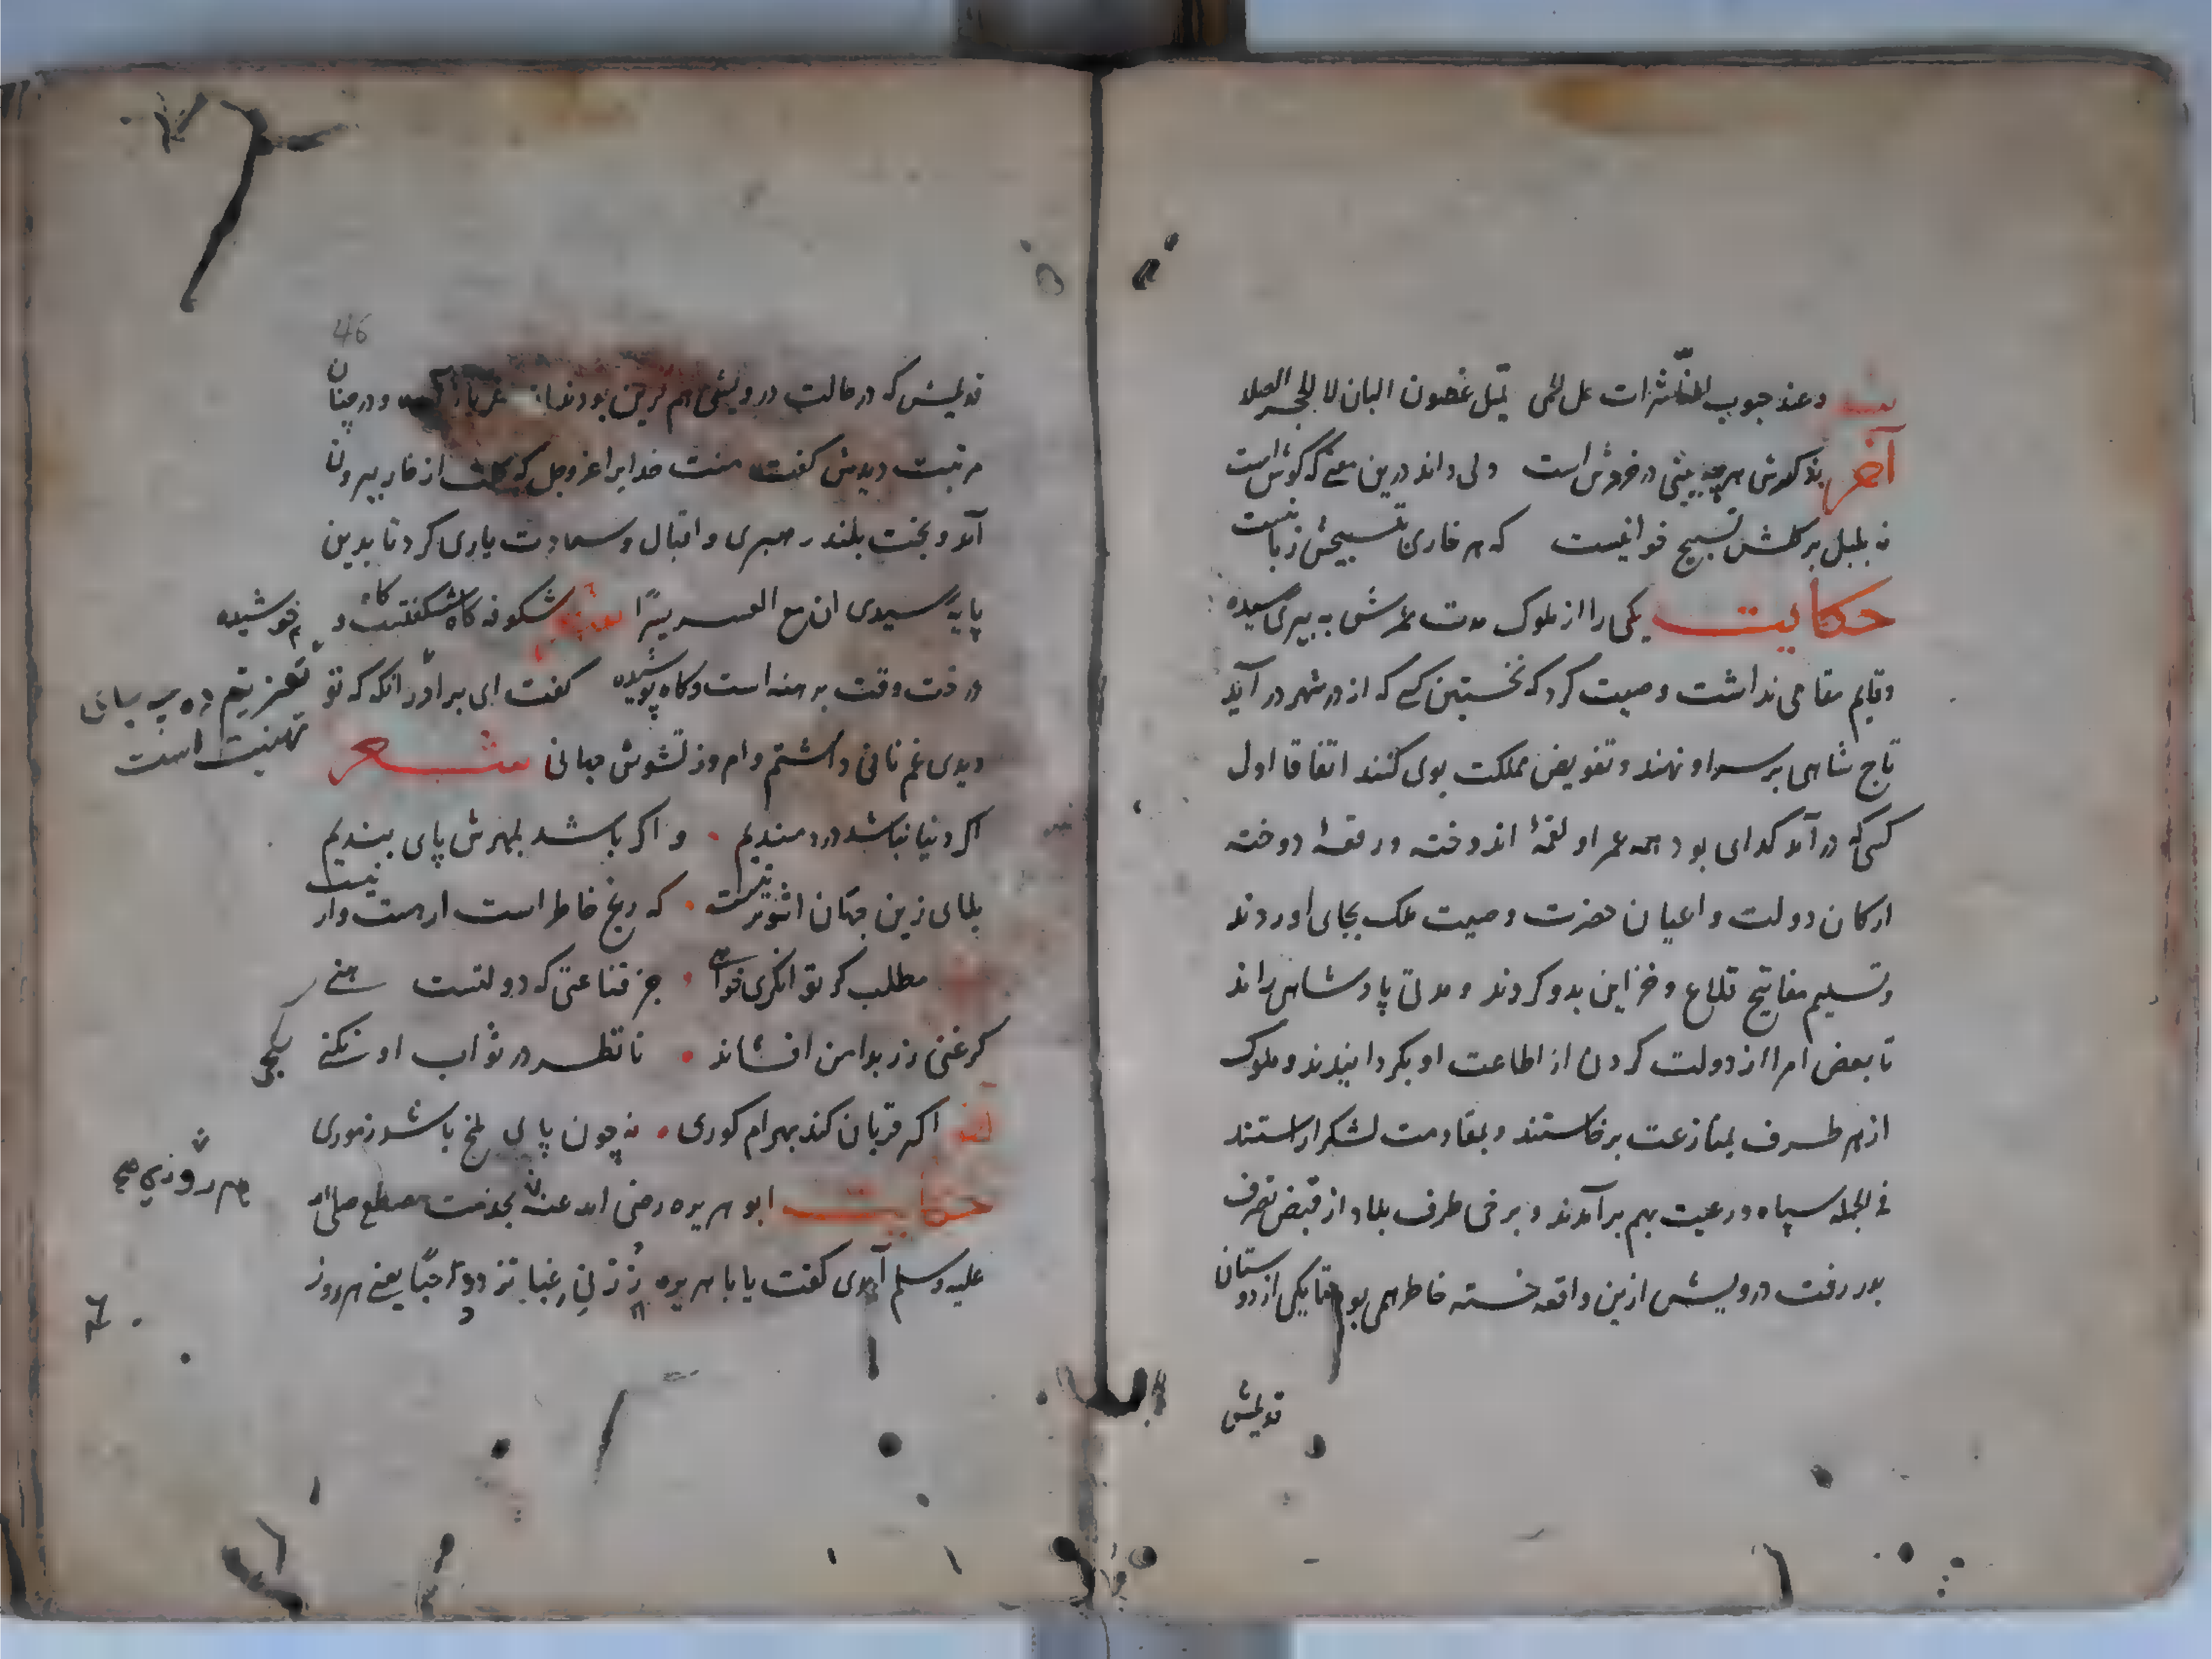 بیت وعند هبوب الناشرات علی الحمی تمیل غصون البان لا الحجر الصلد
آخر بذکرش هرچه بینی در خروش است ولی داند درین معنی که گوش است
نه بلبل بر گلش تسبیح خوانیست که هر خاری تسبیحش زبانیست
حکایت یکی را از ملوک مدت عمرش به پیری رسیده
وقایم مقامی نداشت وصیت کرد که نخستین کسی که از در شهر در آید
تاج شاهی بر سر او نهند و تفویض مملکت بوی کنند اتفاقا اول
کسی که در آمد گدای بود همه عمر او لقمهٔ اندوخته و رقعهٔ دوخته
ارکان دولت و اعیان حضرت وصیت ملک بجای اوردند
و تسلیم مفاتیح قلاع و خزاین بدو کردند و مدتی پادشاهی راند
تا بعض امرا از دولت گردن از اطاعت او بگردانیدند و ملوک
از هر طرف بمنازعت برخاستند و بمقاومت لشکر اراستند
فی الجمله سپاه و رعیت بهم برآمدند و برخی طرف بلاد از قبض تصرف
بدر رفت درویش ازین واقعه خسته خاطر همی بود تا یکی از دوستان
قدیمش
46
قدیمش که در حالت درویشی هم قرین بودند از و در چنان
مرتبت دیدش گفت منت خدایرا عز وجل که گلت از خار بیرون
آمد و بخت بلند رهبری و اقبال و سعادت یاری کرد تا بدین
پایه رسیدی ان مع العسر یسرًا شکوفه گاه شکفتست و گاه خوشیده
درخت وقت برهنه است و گاه پوشیده گفت ای برادر انکه که تو
تعزیتم ده چه جای تهنیت است
دیدی غم نانی داشتم و امروز تشویش جهانی شعر
اگر دنیا نباشد دردمندیم و اگر باشد بمهرش پای بندیم
بلای زین جهان اشوبتر نیست که رنج خاطر است ار هست وار نیست
مطلب گر توانگری خواهی جز قناعتی که دولتست هنی
گر غنی زر بدامن افشاند تا نظر در ثواب او نکنی
آخر اگر قربان کند بهرام گوری نه چون پای ملخ باشد ز موری
حکایت ابو هریره رضی الله عنه بخدمت مصطفی صلی الله
علیه وسلم آمدی گفت یا با هریره زُرْنِی غِبا تزدد حبًّا یعنی هر روز